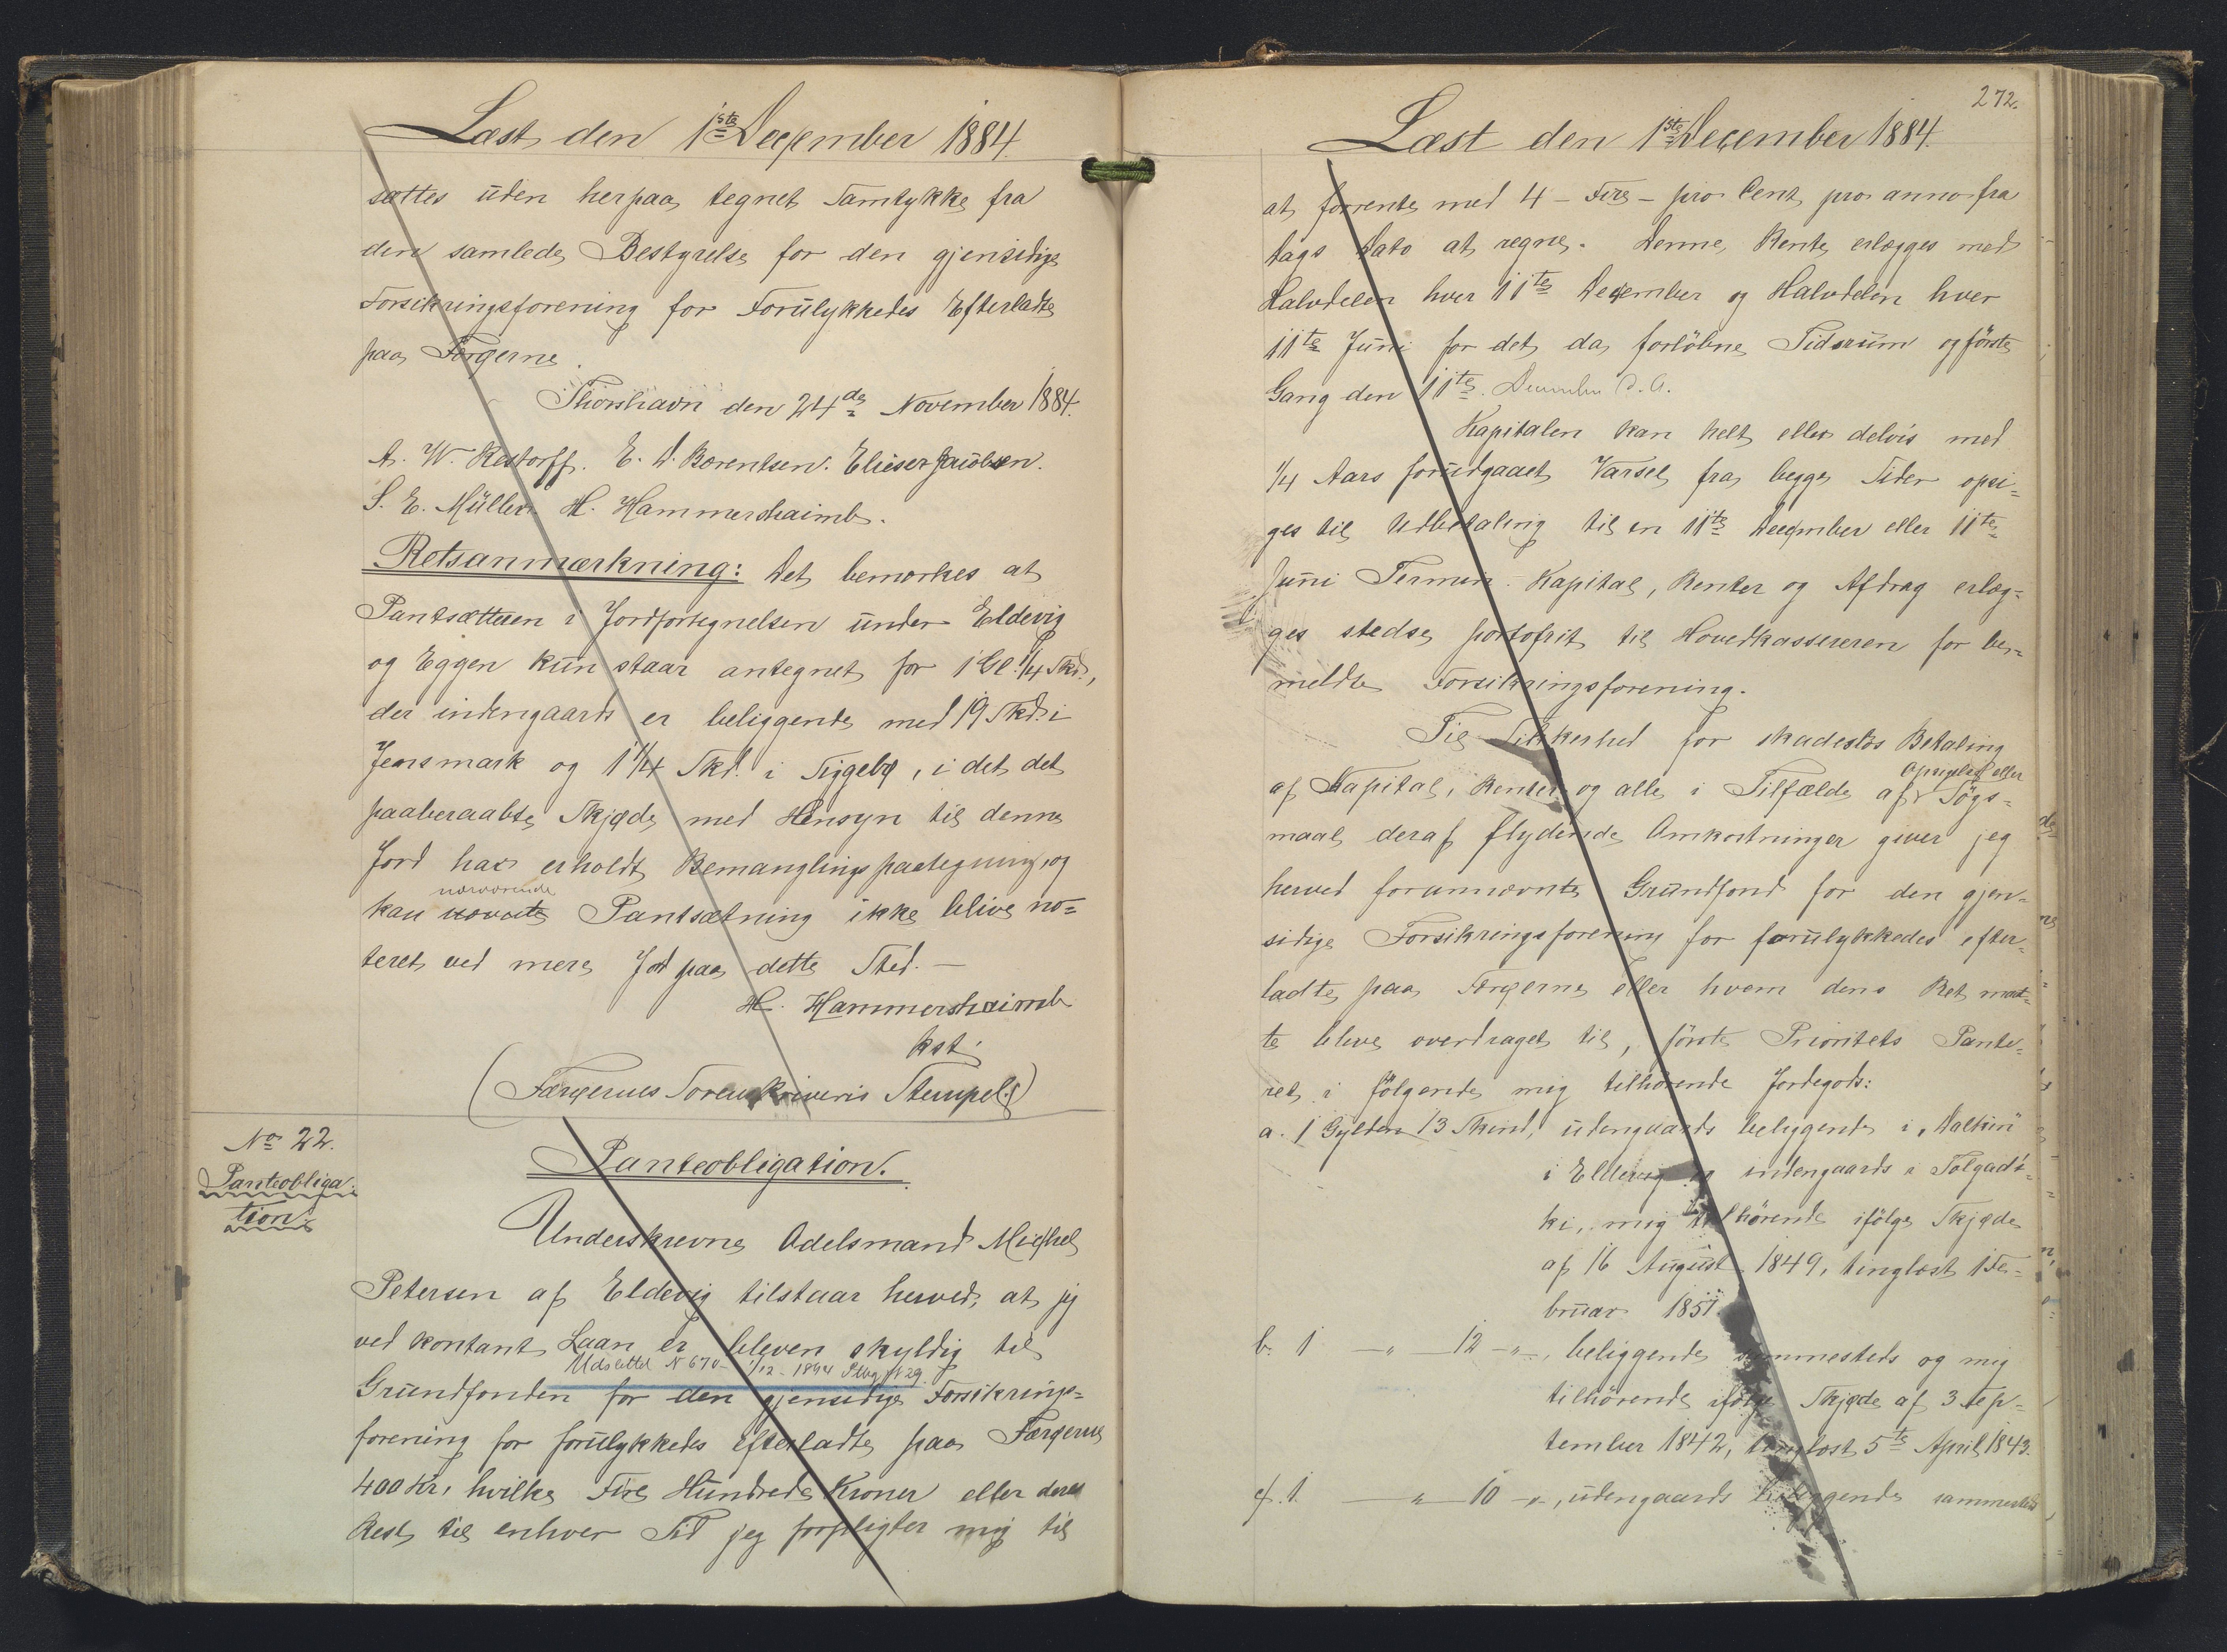 Læst den 1ste December 1884.
sættes uden herpaa tegnet Samtykke fra
den samlede Bestyrelse for den gjensidige
Forsikringsforening for Forulykkedes Efterladte
paa Færøerne.
Thorshavn den 24de November 1884.
A. W. Restorff. E. D. Bærentsen. Elieser Jacobsen.
S. E. Müller. H. Hammershaimb.
Retsanmærkning: Det bemærkes at
Pantsætteren i Jordfortegnelsen under Eldevig
og Eggen kun staar antegnet for 1 Gl. 1/4 Skd.,
der indengaards er beliggende med 19 Skd. i
Jensmark og 1 1/4 Skd. i Tiggebø, i det det
paaberaabte Skjøde med Hensyn til denne
Jord har erholdt Bemanglingspaategning, og
nærværende
kan Pantsætning ikke blive no=
teret ved mere Jord paa dette Sted. —
H. Hammershaimb
kst.
(Færøernes Sorenskriveris Stempel.)
No 22.
Panteobliga-
tion.
Panteobligation.
Underskrevne Odelsmand Michel
Petersen af Eldevig tilstaar herved, at jeg
ved kontant Laan er bleven skyldig til
Udslettet N 670 - 1/12 - 1894 Pbg N 29.
Grundfonden for den gjensidige Forsikrings=
forening for forulykkedes efterladte paa Færøerne
400 Kr, hvilke Fire Hundrede Kroner eller deres
Rest til enhver Tid jeg forpligter mig til
272.
Læst den 1ste December 1884.
at forrente med 4 - Fire - pro Cent pro anno fra
dags Dato at regne. Denne Rente erlægges med
Halvdelen hver 11te December og Halvdelen hver
11te Juni for det da forløbne Tidsrum og første
Gang den 11te December d. A.
Kapitalen kan helt eller delvis med
1/4 Aars forudgaaet Varsel fra begge Sider opsi=
ges til Udbetaling til en 11te December eller 11te
Juni Termin. Kapital, Renter og Afdrag erlæg=
ges stedse portofrit til Hovedkassereren for be=
meldte Forsikringsforening.
Til Sikkerhed for skadesløs Betaling
Opsigelse eller
af Kapital, Renter og alle i Tilfælde af Søgs=
maal deraf flydende Omkostninger giver jeg
herved forannævnte Grundfond for den gjen=
sidige Forsikringsforening for forulykkedes efter=
ladte paa Færøerne eller hvem dens Ret maat=
te blive overdraget til, første Prioritets Pante=
ret i følgende mig tilhørende Jordegods:
a. 1 Gylden 13 Skind, udengaards beliggende i
i Eldevig og indengaards i Tolgadi=
ki, mig tilhørende ifølge Skjøde
af 16 August 1849, tinglæst 1 Fe=
bruar 1851.
b. 1 —"— 12 —"—, beliggende sammesteds og mig
tilhørende ifølge Skjøde af 3 Sep=
tember 1842, tinglæst 5te April 1843.
c. 1 —"— 10 —"—, udengaards beliggende sammesteds